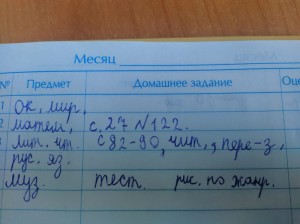 Месяц
№ Предмет Домашнее задание Оце
1 Ок. мир.
2 матем. с. 27 № 122.
3 лит. чт. с 82-90, чит., пере-з,
рус. яз.
муз. тест. рис. по жанр.